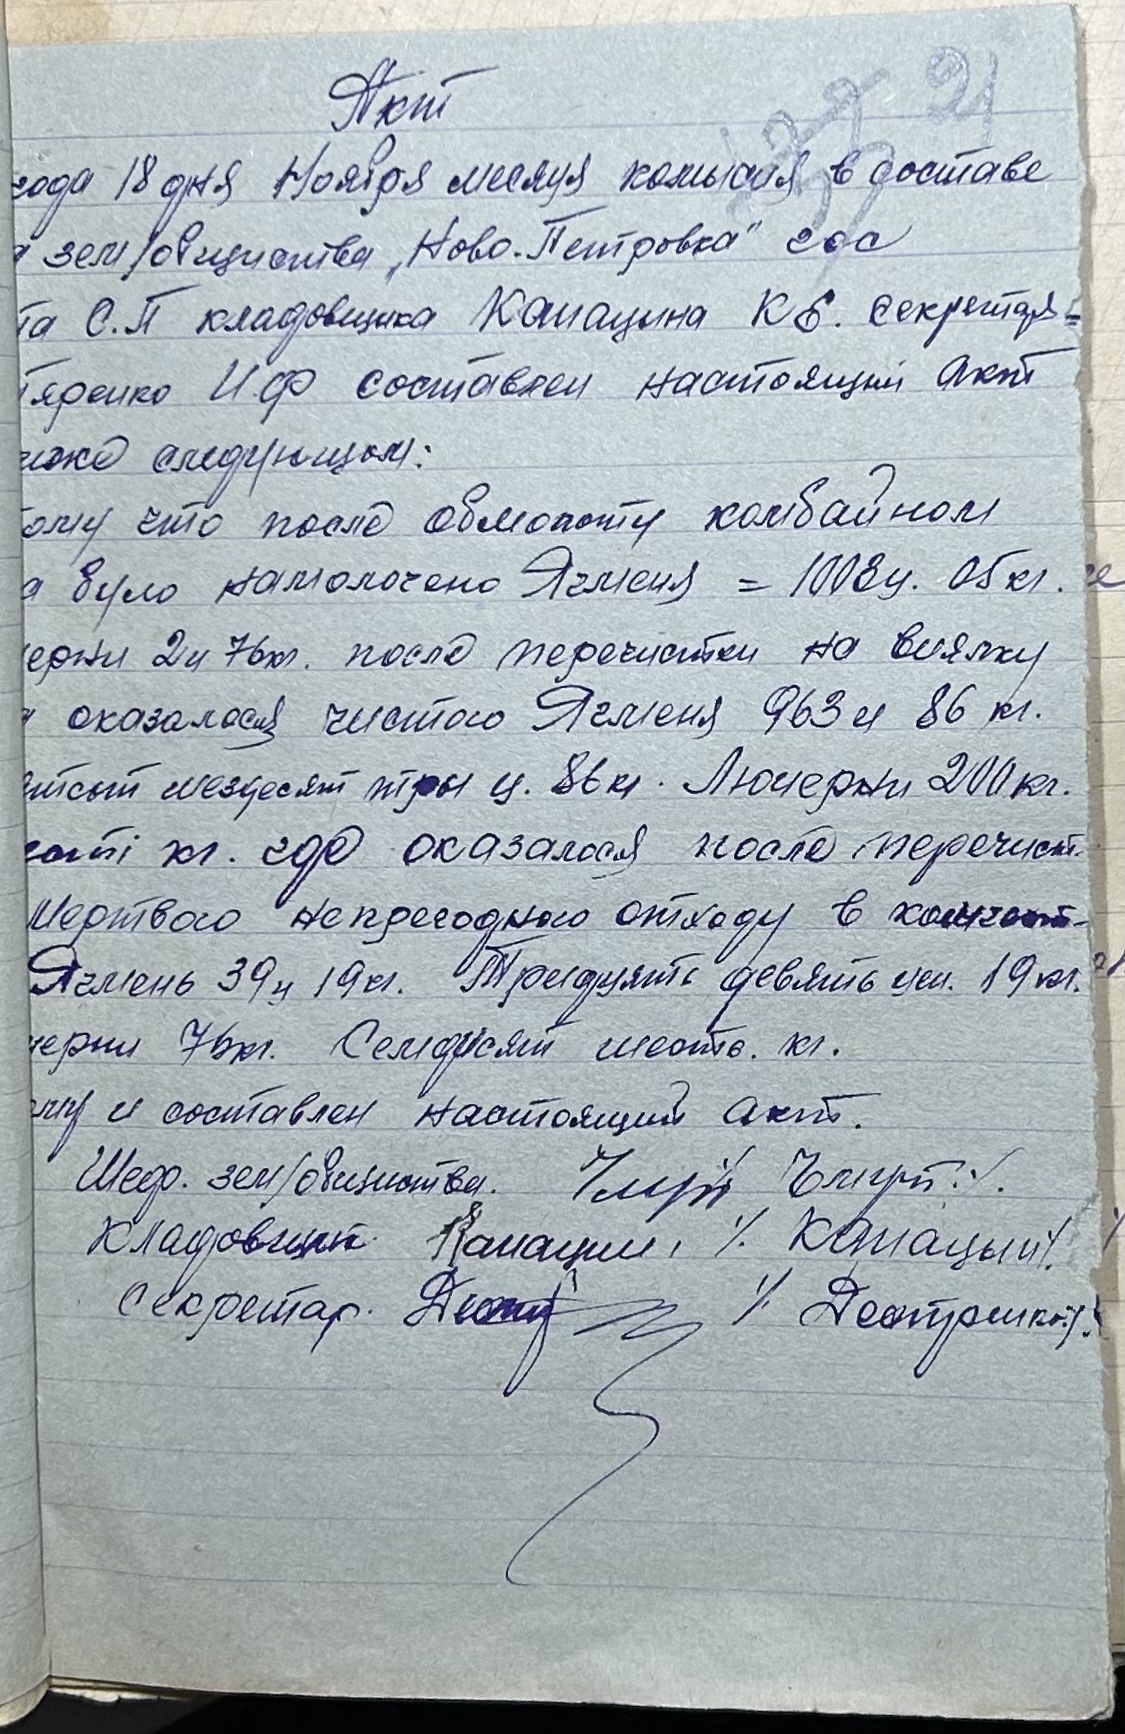 21
Акт
года 18 дня Ноября месяця комысия в составе
зем/общиства „Ново-Петровка" гос
та С.П кладовщика Капацына К Е. секретаря=
тяренко И.Ф составлен настоящий акт
ниже следующом:
тому что после обмолоту комбайном
а було намолочено Ячменя = 1003ц. 05 кг.
церни 2ц 76кг. после перечистки на виялку
оказалося чистого Ячменя 963 ц 86 кг.
ятсот шездесят тры ц. 86кг. Люцерни 200 кг.
соті кг. где оказалося после перечист.
Мертвого непрегодного отходу в
Ячмень 39ц 19кг. Тридцять девять цен. 19 кг.
церни 76кг. Семдисят шость. кг.
ому и составлен настоящий акт.
Шеф. зем/общиства.
Кладовщик Капацин, /. Капацын/.
Секретар. /.